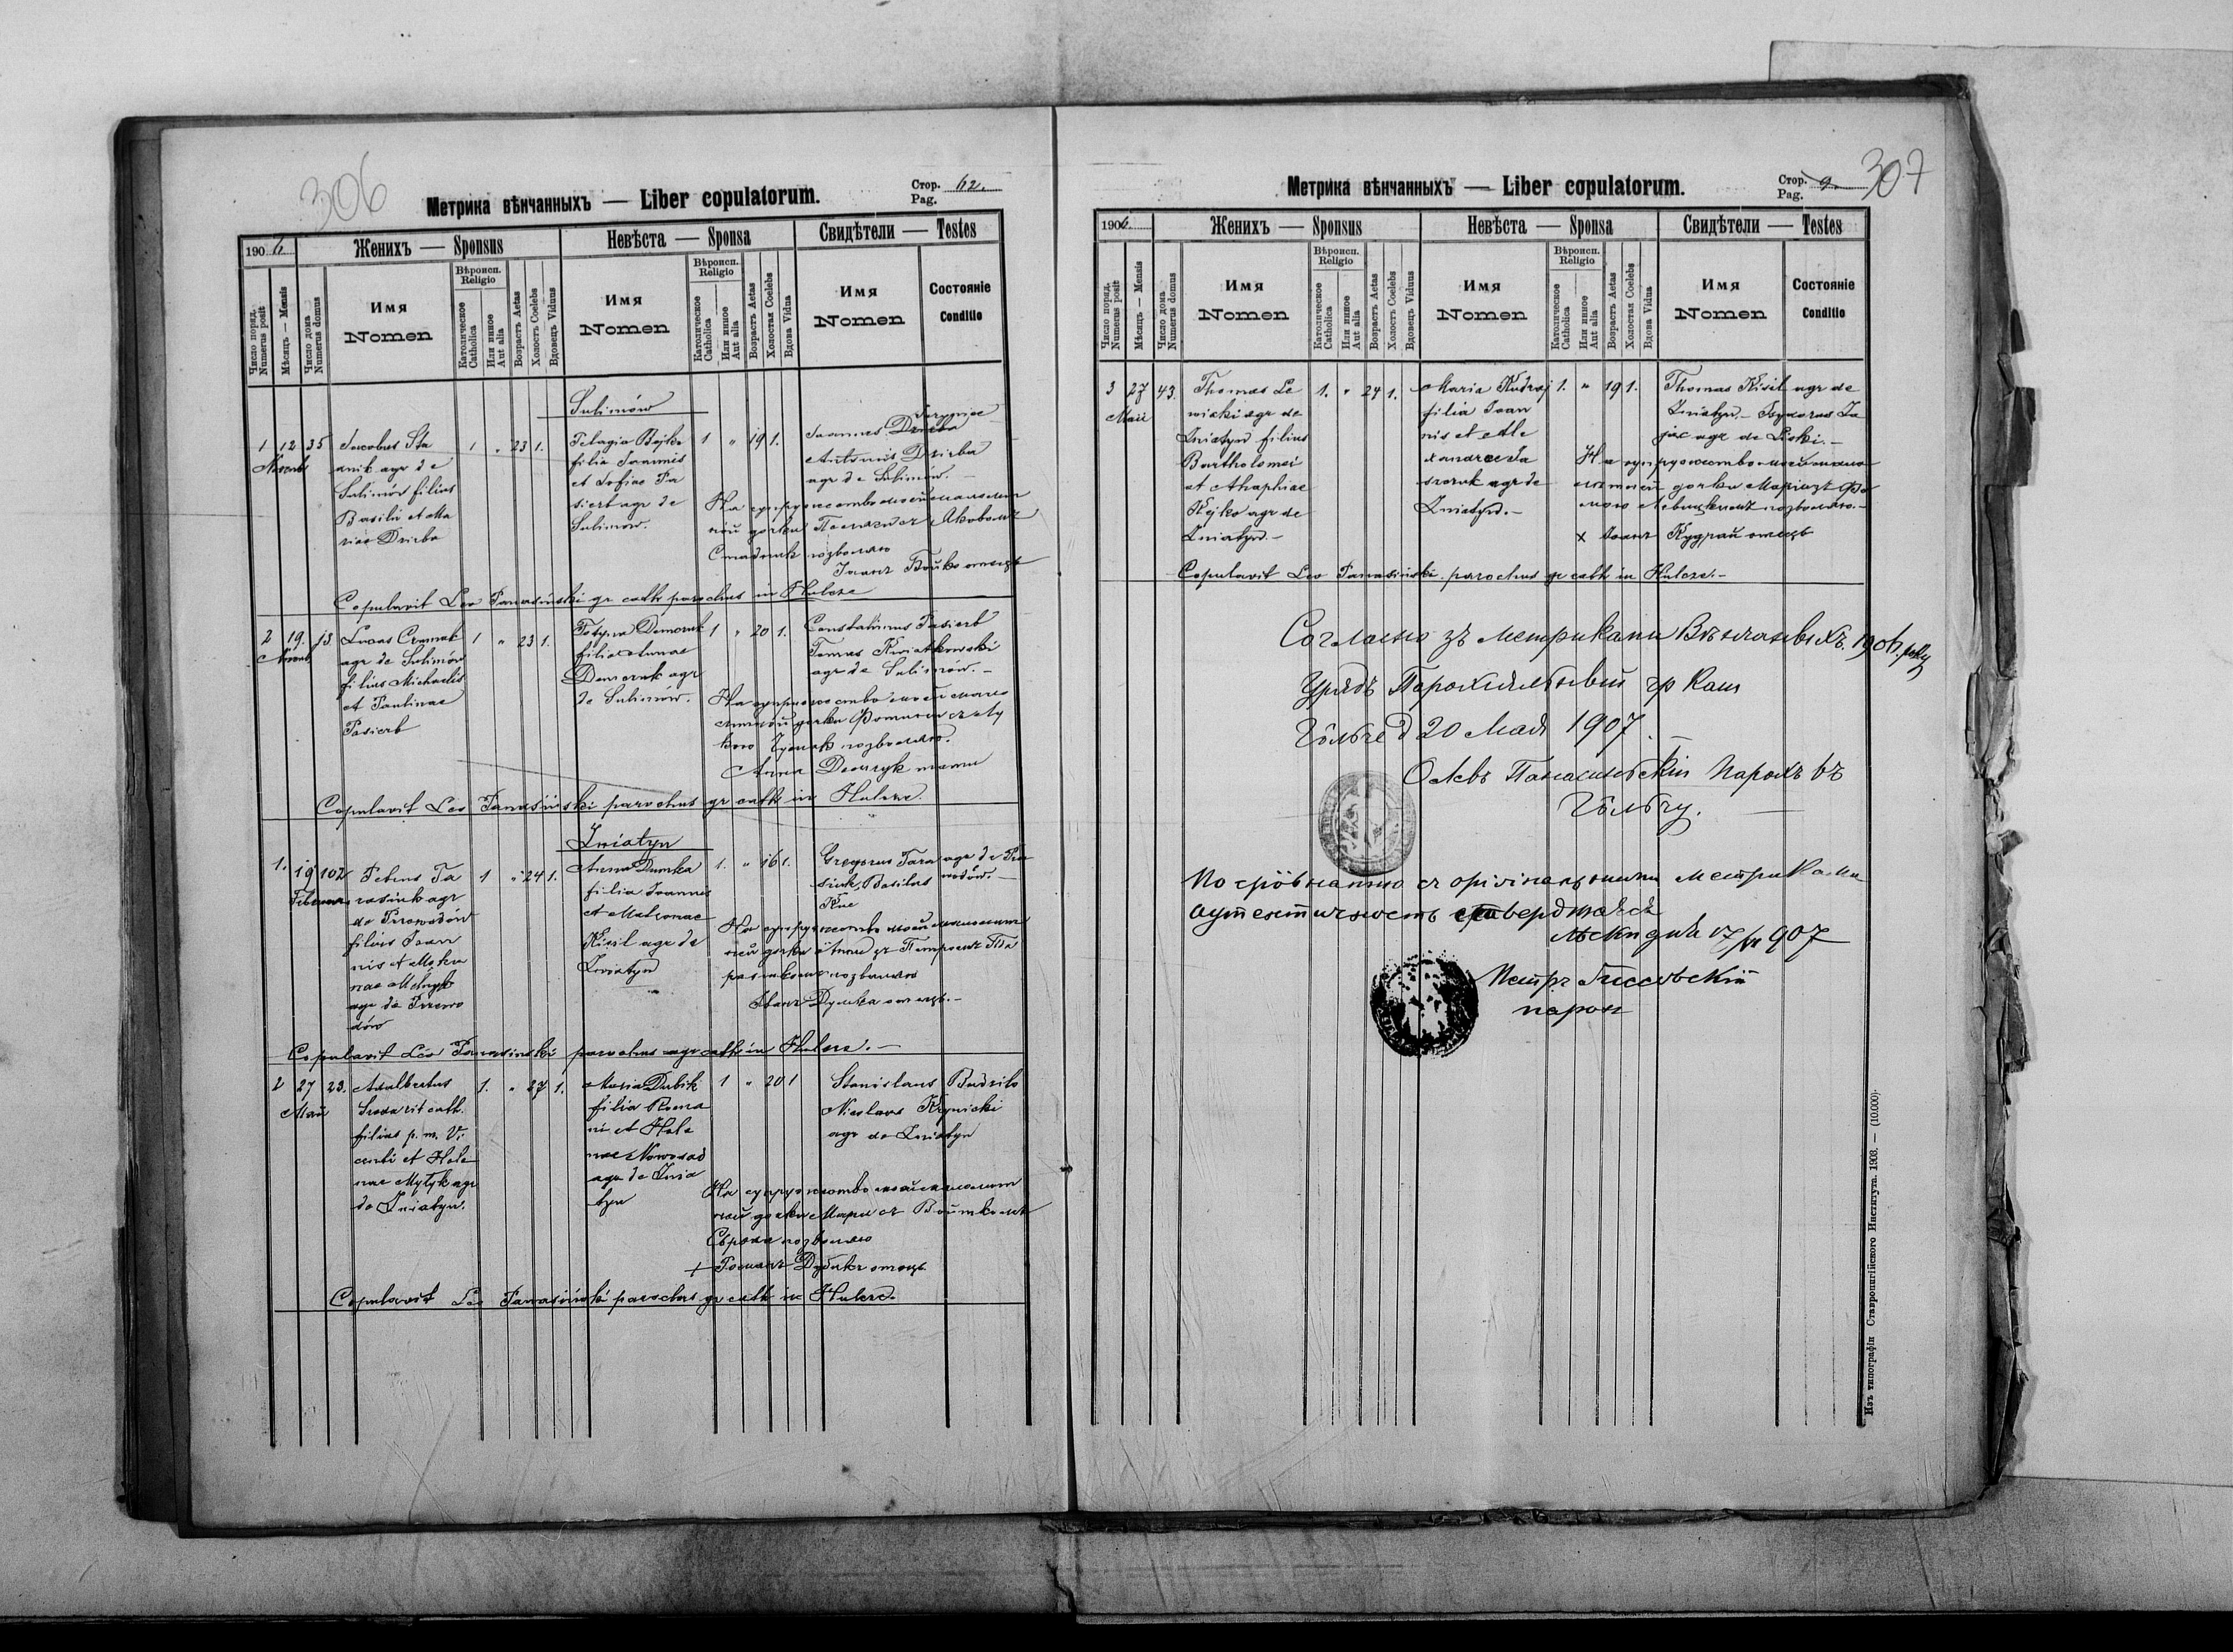 306
Метрика вѣнчанныхъ — Liber copulatorum.
Стор. 62.
Pag.
1906
Женихъ — Sponsus
Невѣста — Sponsa
Свидѣтели — Testes
Число поряд. Numerus posit
Мѣсяцъ — Mensis
Число дома Numerus domus
Имя
Nomen
Вѣроисп. Religio
Католическое Catholica
Или инное Aut alia
Возрастъ Aetas
Холостъ Coelebs
Вдовецъ Viduus
Имя
Nomen
Вѣроисп. Religio
Католическое Catholica
Или инное Aut alia
Возрастъ Aetas
Холостая Coelebs
Вдова Vidua
Имя
Nomen
Состояніе
Conditio
Sulimów
1 12 35
Jacobus Sta
dnik agr de
Sulimów filius
Basilii et Ma
riae Dziuba
1 " 23 1.
Pelagia Bojko
filia Joannis
et Sofiae Pa
sierb agr de
Sulimów.
1 " 19 1.
Joannes
Antonius Dziuba
agr de Sulimów. –
На супружество моей малолѣт
ной дочки Пелагіи зъ Яковомъ
Стадникъ позволяю
Іоанъ Бойко отецъ
Copulavit Leo Panasiński gr cath parochus in Hulcze
2 19. 13
Lucas Czumak
agr de Sulimów
filius Michaelis
et Paulinae
Pasierb
1 " 23 1.
Fotyna Demczuk
filia Annae
Demczuk agr
de Sulimów.
1 " 20 1.
Constantinus Pasierb
Tomas Kwiatkowski
agr de Sulimów. –
На супружество моей мало
лѣтной дочки Фотины зъ Лу
кою Чумакъ позволяю.
Анна Демчук мати
Copulavit Leo Panasiński parochus gr cath in Hulcze.
Żniatyn
1. 19 102
Februar
Petrus Ta
rasiuk agr
de Przewodów
filius Joan
nis et Matro
nae Melnyk
agr de Przewo
dów
1 " 24 1.
Anna Dumka
filia Joannis
et Matronae
Kisil agr de
Żniatyn
1. " 16 1.
Gregorius Tara
siuk, Basilius
Kuc
agr de Prze
wodów. –
На супружество моей малолѣт
ней дочки Анны зъ Петромъ Та
расюкомъ позваляю
Иванъ Думка отецъ. –
Copulavit Leo Panasiński parochus gr cath in Hulcze. –
2 27 23.
Maii
Adalbertus
Sroka rit cath.
filius p. m. Vi
centi et Hele
nae Mytyk agr
de Żniatyn.
1. " 27 1.
Maria Dubik
filia Roma
ni et Hele
nae Nowosad
agr de Żnia
tyn
1 " 20 1
Stanislaus Budziło
Nicolaus Krynicki
agr de Żniatyn
На супружество моей малолѣт
ной дочки Маріи съ Войткомъ
Сърока позволяю
+ Романъ Дубикъ отецъ.
Copulavit Leo Panasiński parochus gr cath in Hulcze.
307
Метрика вѣнчанныхъ — Liber copulatorum.
Стор. 9.
Pag.
1906
Женихъ — Sponsus
Невѣста — Sponsa
Свидѣтели — Testes
Число поряд. Numerus posit
Мѣсяцъ — Mensis
Число дома Numerus domus
Имя
Nomen
Вѣроисп. Religio
Католическое Catholica
Или инное Aut alia
Возрастъ Aetas
Холостъ Coelebs
Вдовецъ Viduus
Имя
Nomen
Вѣроисп. Religio
Католическое Catholica
Или инное Aut alia
Возрастъ Aetas
Холостая Coelebs
Вдова Vidua
Имя
Nomen
Состояніе
Conditio
3 27 43.
Maii
Thomas Le
wicki agr de
Żniatyn filius
Bartholomei
et Ahaphiae
Kejko agr de
Żniatyn –
1. " 24 1.
Maria Kudraj
filia Joan
nis et Ale
xandrae Ja
szczuk agr de
Żniatyn. –
1. " 19 1.
Thomas Kisil agr de
Żniatyn. – Isydorus Za
jac agr de Liski. –
На супружество моей мало
лѣтной дочки Маріи зъ Фо
мою Левицкимъ позволяю. –
x Іоанъ Кудрай отецъ
Copulavit Leo Panasiński parochus gr cath in Hulcze. –
Согласно зъ Метриками Вѣнчаныхъ. 1906. року
Урядъ Парохіяльный гр кат
Гôльче д 20 Мая 1907. –
О Левъ Панасиньскій Парохъ въ
Гôльчу. –
По зрôвнанню съ оріґінальними метриками
аутентичность стверджаесь
Лѣски дня 17/VI 907
Петръ
парох
Изъ типографіи Ставропигійского Института. 1903. — (10.000).